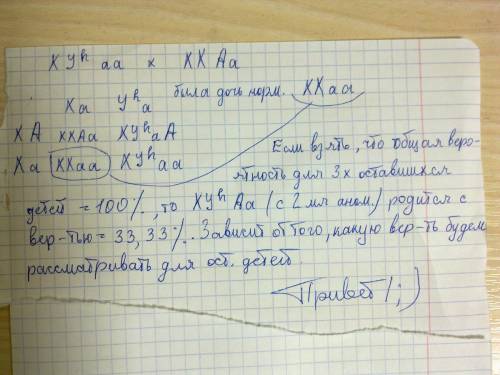 X Yʰ aa x XX Aa
Xa Yʰa была дочь норм. XXaa
XA XXAa XYʰaA
Xa XXaa XYʰaa Если взять, что общая веро-
ятность для 3х оставшихся
детей = 100%, то XYʰAa (с 2 мя аном.) родится с
вер-тью = 33,33%. Зависит от того, какую вер-ть будем
рассматривать для ост. детей.
Привет! ;)